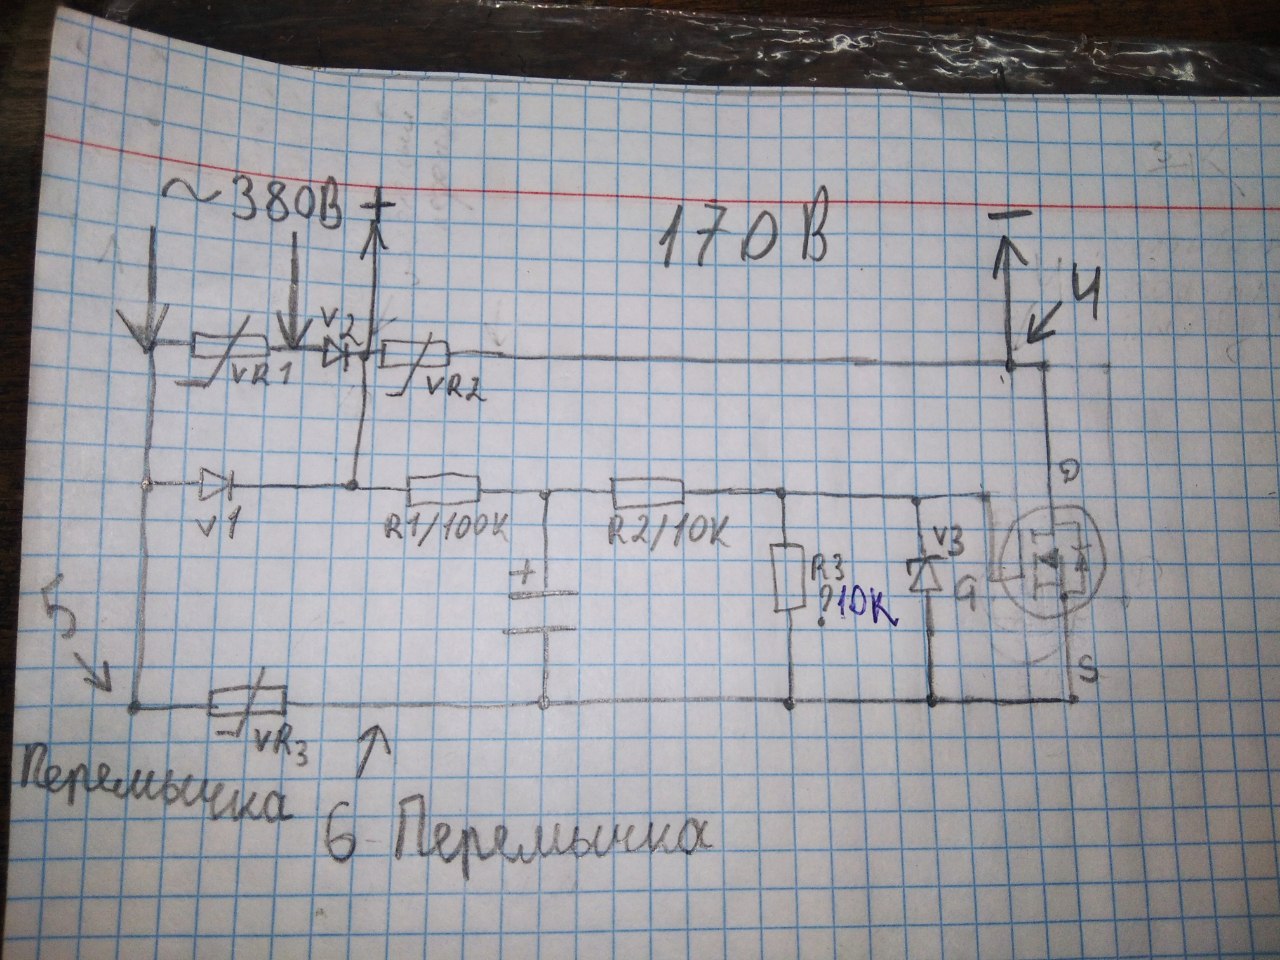 ~380В +
170В
−
4
V2
VR1
VR2
V1
R1/100К
R2/10К
D
+
V3
R3
?10К
G
5
S
VR3
Перемычка
6 Перемычка